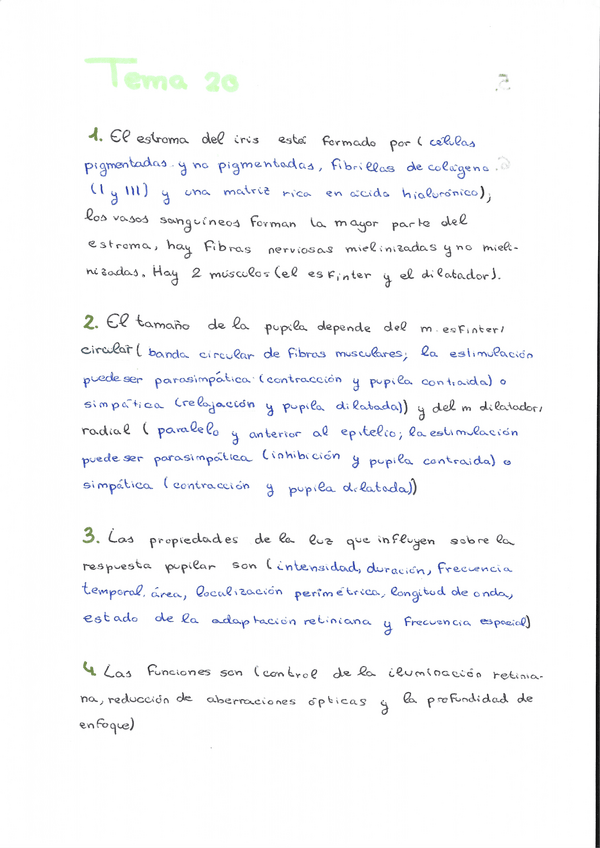 Tema 20
1. El estroma del iris está formado por (células
pigmentadas y no pigmentadas, fibrillas de colágeno
(I y III) y una matriz rica en ácido hialurónico),
los vasos sanguíneos forman la mayor parte del
estroma, hay fibras nerviosas mielinizadas y no mieli-
nizadas. Hay 2 músculos (el esfinter y el dilatador).
2. El tamaño de la pupila depende del m. esfinter/
circular (banda circular de fibras musculares; la estimulación
puede ser parasimpática (contracción y pupila contraida) o
simpática (relajación y pupila dilatada)) y del m dilatador/
radial (paralelo y anterior al epitelio; la estimulación
puede ser parasimpática (inhibición y pupila contraida) o
simpática (contracción y pupila dilatada))
3. Las propiedades de la luz que influyen sobre la
respuesta pupilar son (intensidad, duración, frecuencia
temporal, área, localización perimétrica, longitud de onda,
estado de la adaptación retiniana y frecuencia espacial)
4. Las funciones son (control de la iluminación retinia-
na, reducción de aberraciones ópticas y la profundidad de
enfoque)